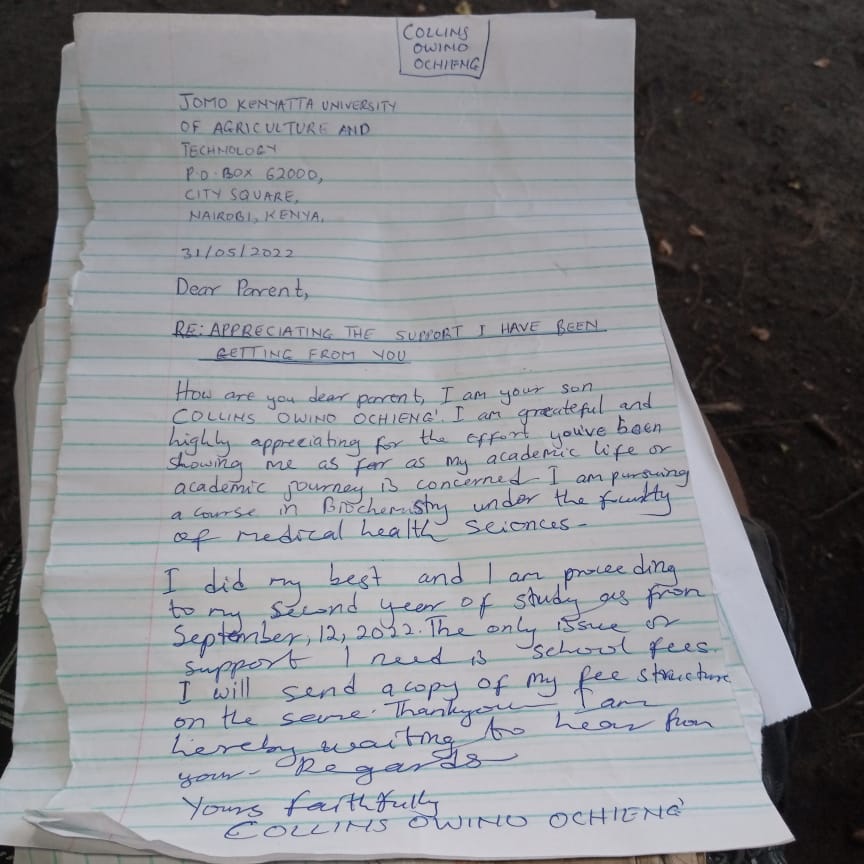 COLLINS
OWINO
OCHIENG
JOMO KENYATTA UNIVERSITY
OF AGRICULTURE AND
TECHNOLOGY
P.O. BOX 62000,
CITY SQUARE,
NAIROBI, KENYA,
31/05/2022
Dear Parent,
RE: APPRECIATING THE SUPPORT I HAVE BEEN
GETTING FROM YOU
How are you dear parent, I am your son
COLLINS OWINO OCHIENG'. I am greateful and
highly appreciating for the effort you've been
showing me as far as my academic life or
academic journey is concerned. I am pursuing
a course in Biochemistry under the faculty
of medical health sciences-
I did my best and I am proceeding
to my second year of study as from
September, 12, 2022. The only issue or
support I need is school fees.
I will send a copy of my fee structure
on the same. Thankyou I am
hereby waiting to hear from
your- Regards
Yours faithfully
COLLINS OWINO OCHIENG'